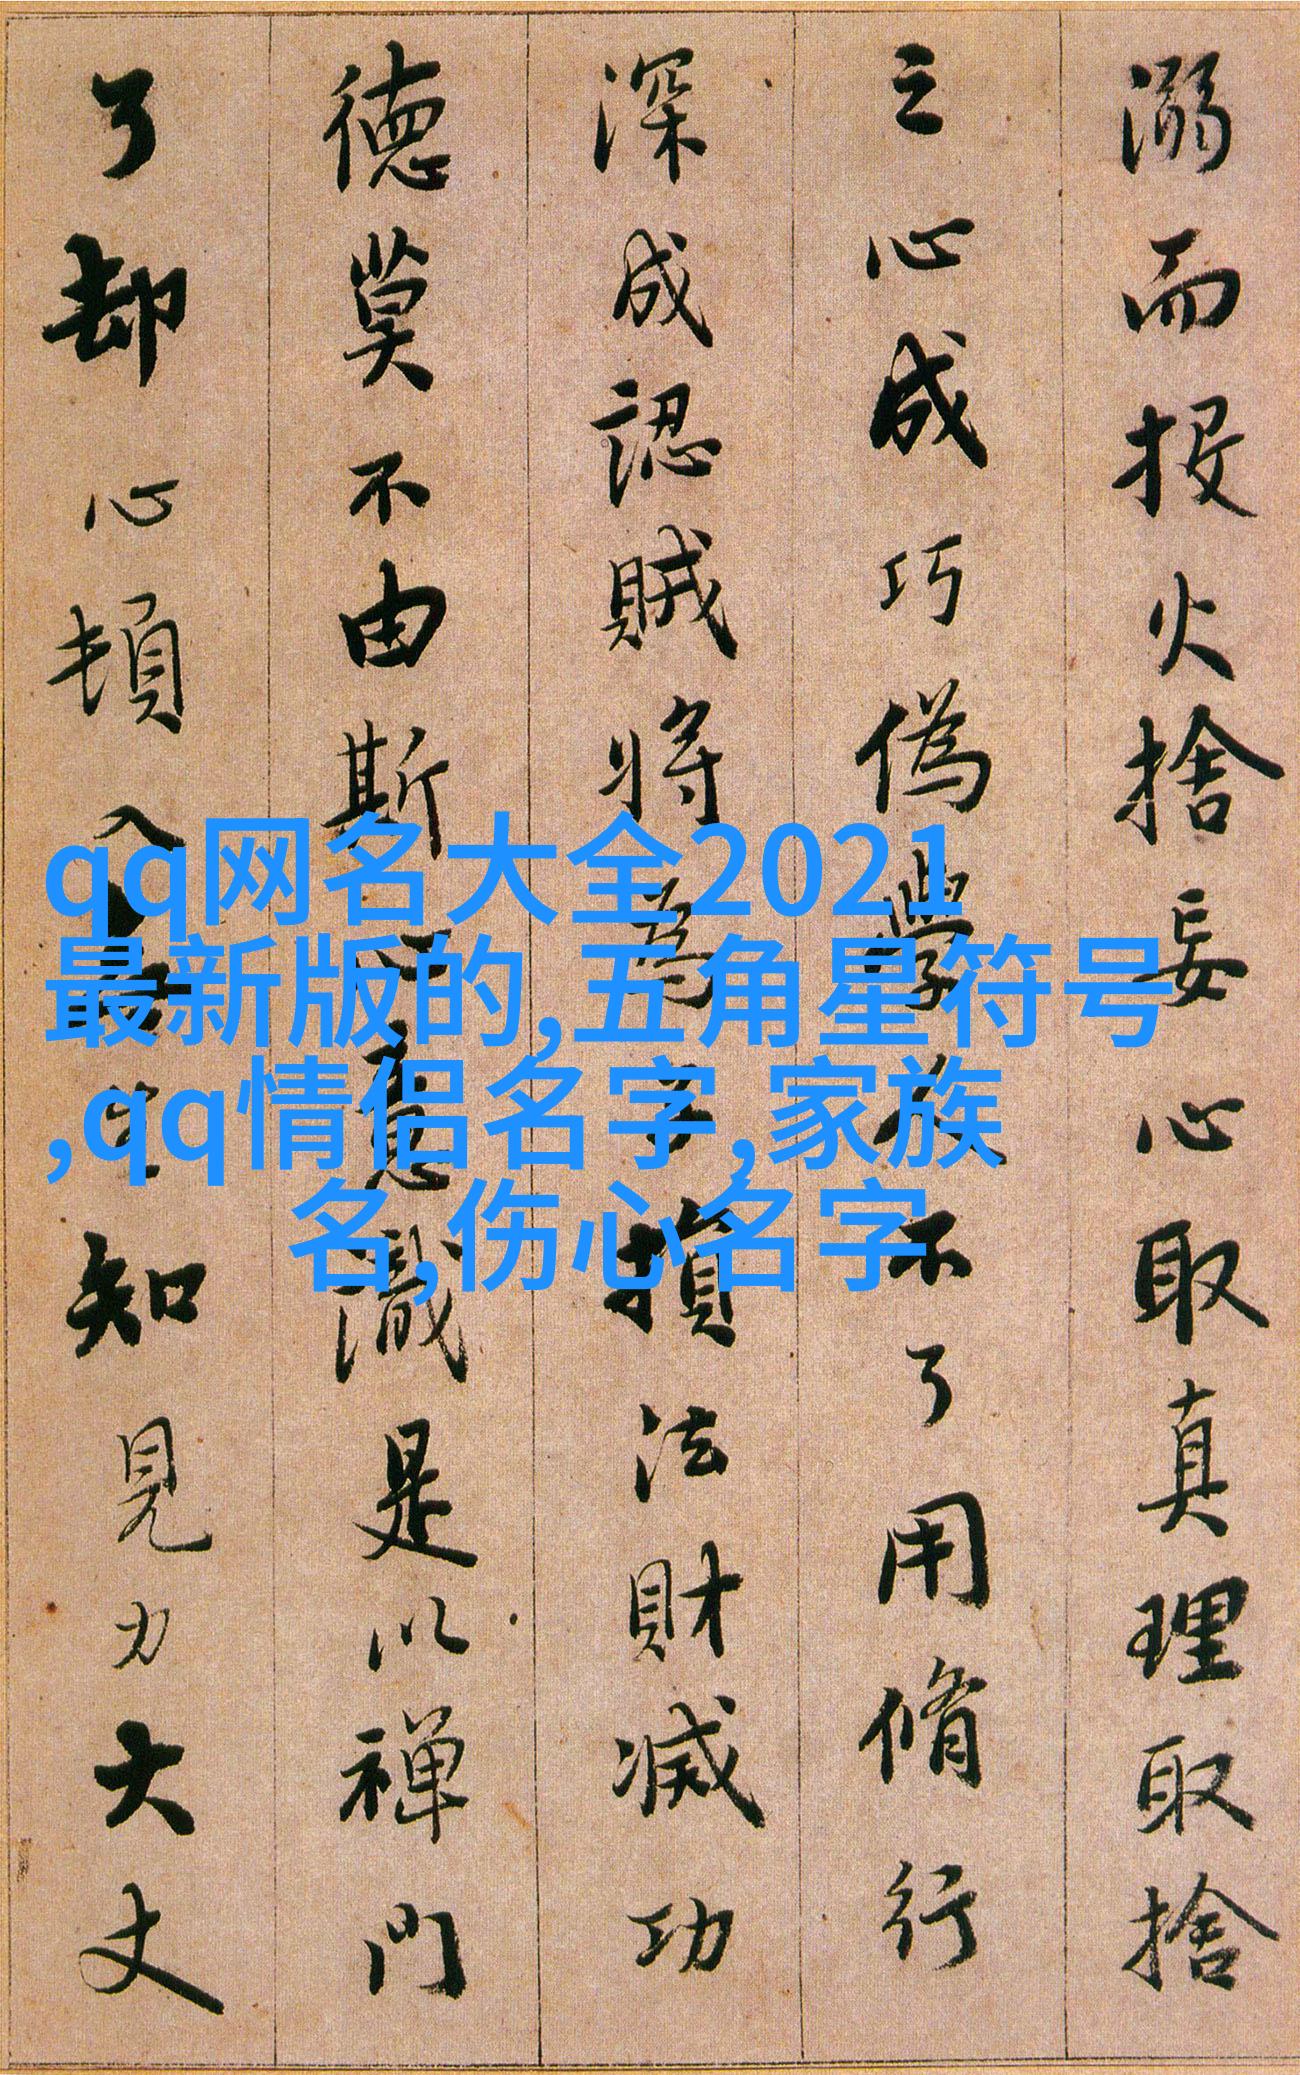 溺而投火捨妄心取真理取捨
之心成巧偽學人不了用脩行
深成認賊將為子損法財滅功
德莫不由斯心意識是以禪門
了却心頓入無生知見力大丈
qq网名大全2021
最新版的,五角星符号
,qq情侣名字,家族
名,伤心名字